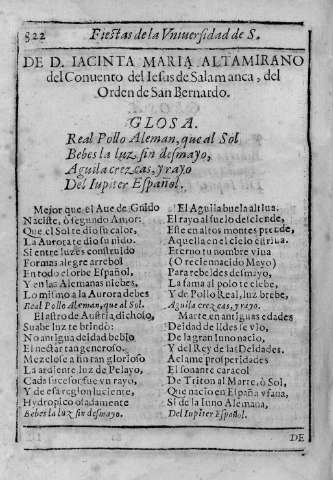 822 Fiestas de la Vniversidad de S.
DE D. IACINTA MARIA ALTAMIRANO
del Conuento del Iesus de Salamanca, del
Orden de San Bernardo.
GLOSA.
Real Pollo Aleman, que al Sol
Bebes la luz sin desmayo,
Aguila crezcas, y rayo
Del Iupiter Español.
Mejor que el Aue de Gnido
Naciste, ò segundo Amor:
Que el Sol te dio su calor,
La Aurora te dio su nido.
Si entre luzes construido
Formas alegre arrebol
En todo el orbe Español,
Y en las Alemanas niebes,
Lo mismo a la Aurora debes
Real Pollo Aleman, que al Sol.
El astro de Austria, dichoso,
Suabe luz te brindò:
No antigua deidad bebio
El nectar tan generoso.
Mezclose a sin tan glorioso
La ardiente luz de Pelayo,
Cada sucessor fue vn rayo,
Y de esa region luciente,
Hydropico osadamente
Bebes la luz, sin desmayo.
El Aguila buela altiua.
El rayo al suelo desciende,
Este en altos montes prende,
Aquella en el cielo estriua.
Eterno tu nombre viua
(O recien nacido Mayo)
Para rebeldes desmayo,
La fama al polo te elebe,
Y de Pollo Real, luz brebe,
Aguila crezcas, y rayo.
Marte en antiguas edades
Deidad de lides se vio,
De la gran Iuno nacio,
Y del Rey de las Deidades.
Aclame prosperidades
El sonante caracol
De Triton al Marte, ò Sol,
Que nacio en España vfana,
Si de la Iuno Alemana,
Del Iupiter Español.
DE